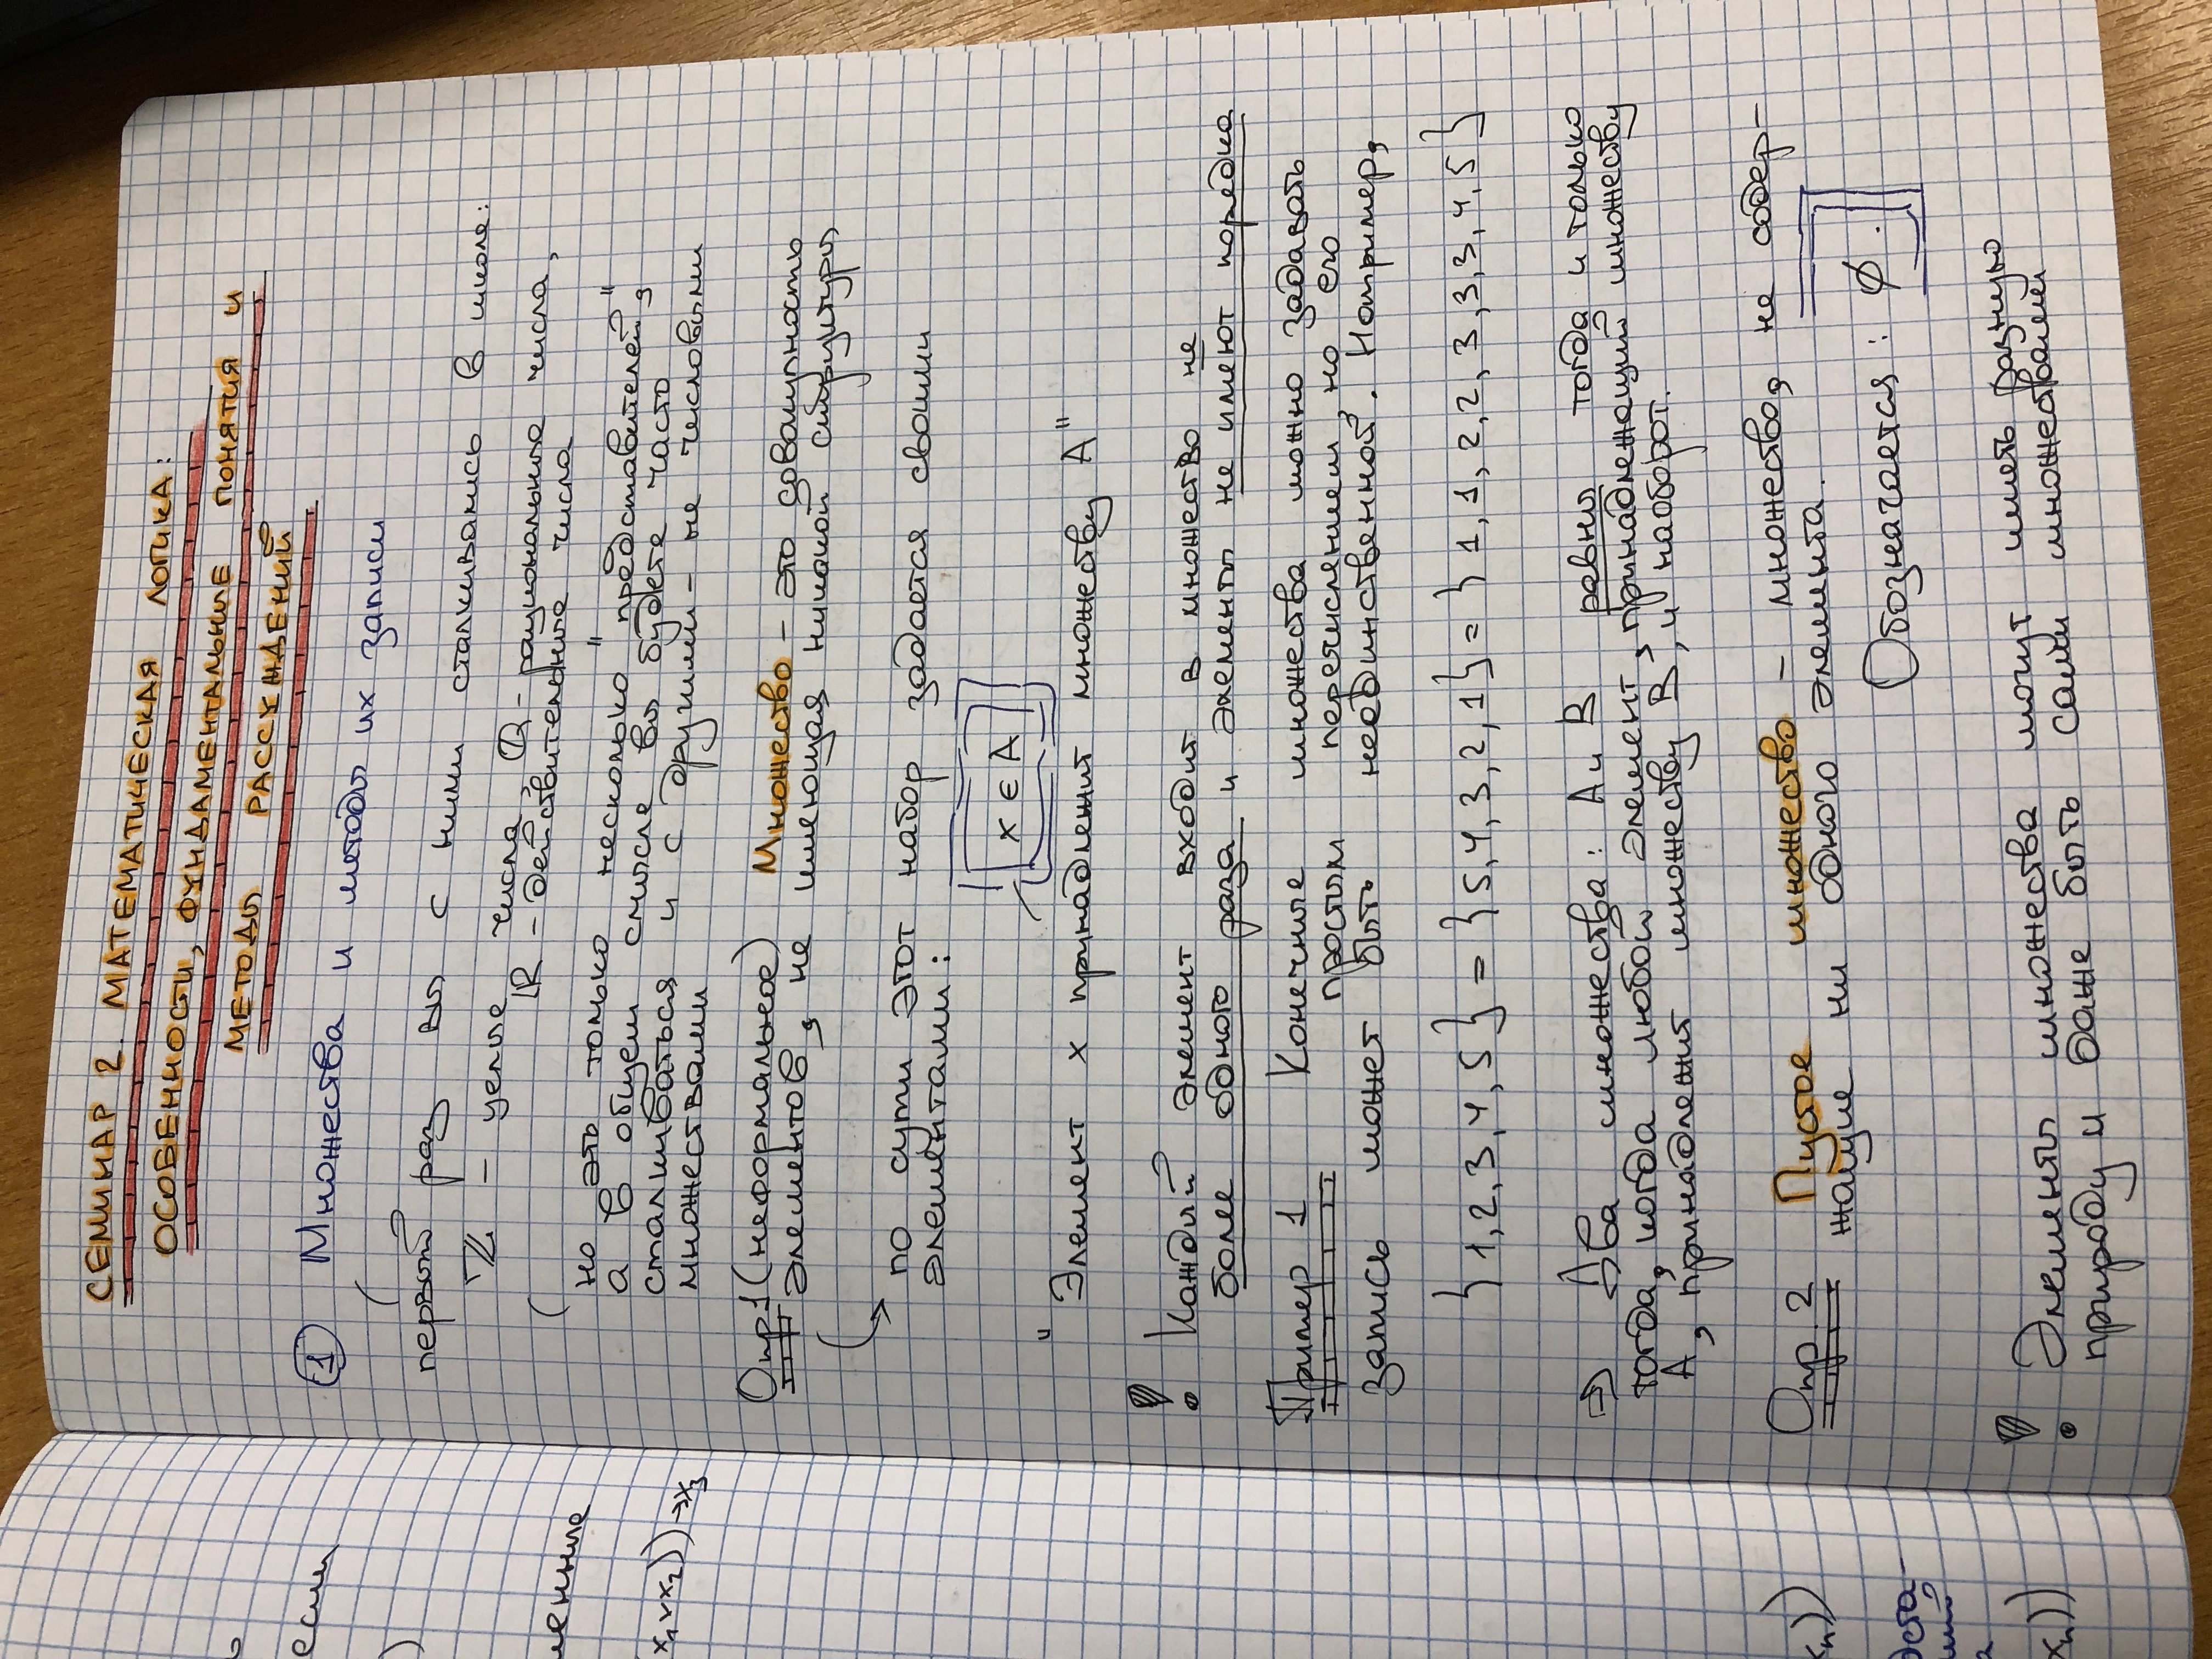 СЕМИНАР 2. МАТЕМАТИЧЕСКАЯ ЛОГИКА:
ОСОБЕННОСТИ, ФУНДАМЕНТАЛЬНЫЕ ПОНЯТИЯ И
МЕТОДЫ РАССУЖДЕНИЙ
1 Множества и методы их записи
первый раз вы с ними сталкивались в школе:
ℤ - целые числа, ℚ - рациональные числа,
ℝ - действительные числа
но это только несколько "представителей",
а в общем смысле вы будете часто
сталкиваться и с другими - не числовыми
множествами
Опр 1 (неформальное) Множество - это совокупность
элементов, не имеющая никакой структуры
по сути этот набор задается своими
элементами:
x ∈ A
"Элемент x принадлежит множеству A"
! Каждый элемент входит в множество не
более одного раза и элементы не имеют порядка
Пример 1 Конечные множества можно задавать
простым перечислением, но его
запись может быть неединственной. Например,
{1, 2, 3, 4, 5} = {5, 4, 3, 2, 1} = {1, 1, 2, 2, 3, 3, 3, 4, 5}
⇒ Два множества: A и B равны тогда и только
тогда, когда любой элемент, принадлежащий множеству
A, принадлежит множеству B, и наоборот.
Опр. 2 Пустое множество - множество, не содер-
жащие ни одного элемента.
Обозначается: ∅.
! Элементы множества могут иметь разную
природу и даже быть сами множествами
если
x₁ ∨ x₂)) → x₃